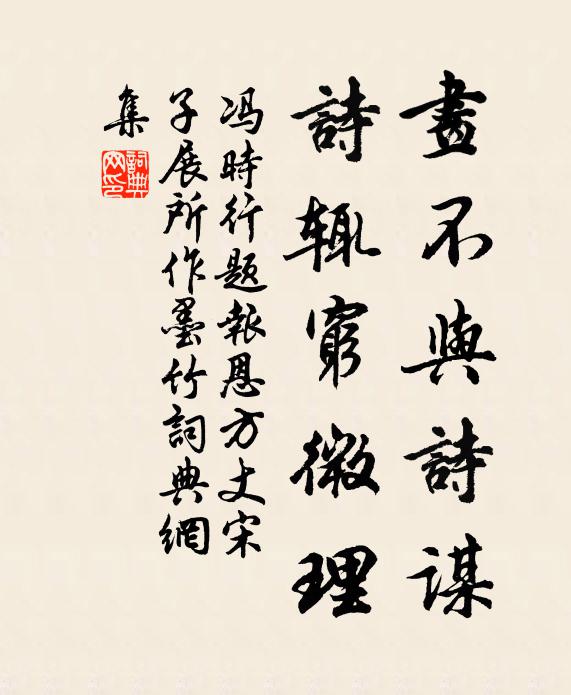 畫不與詩謀
詩輒窮微理
冯時行题報恩方丈宋
子展所作墨竹詞典網
集
詞典
网印